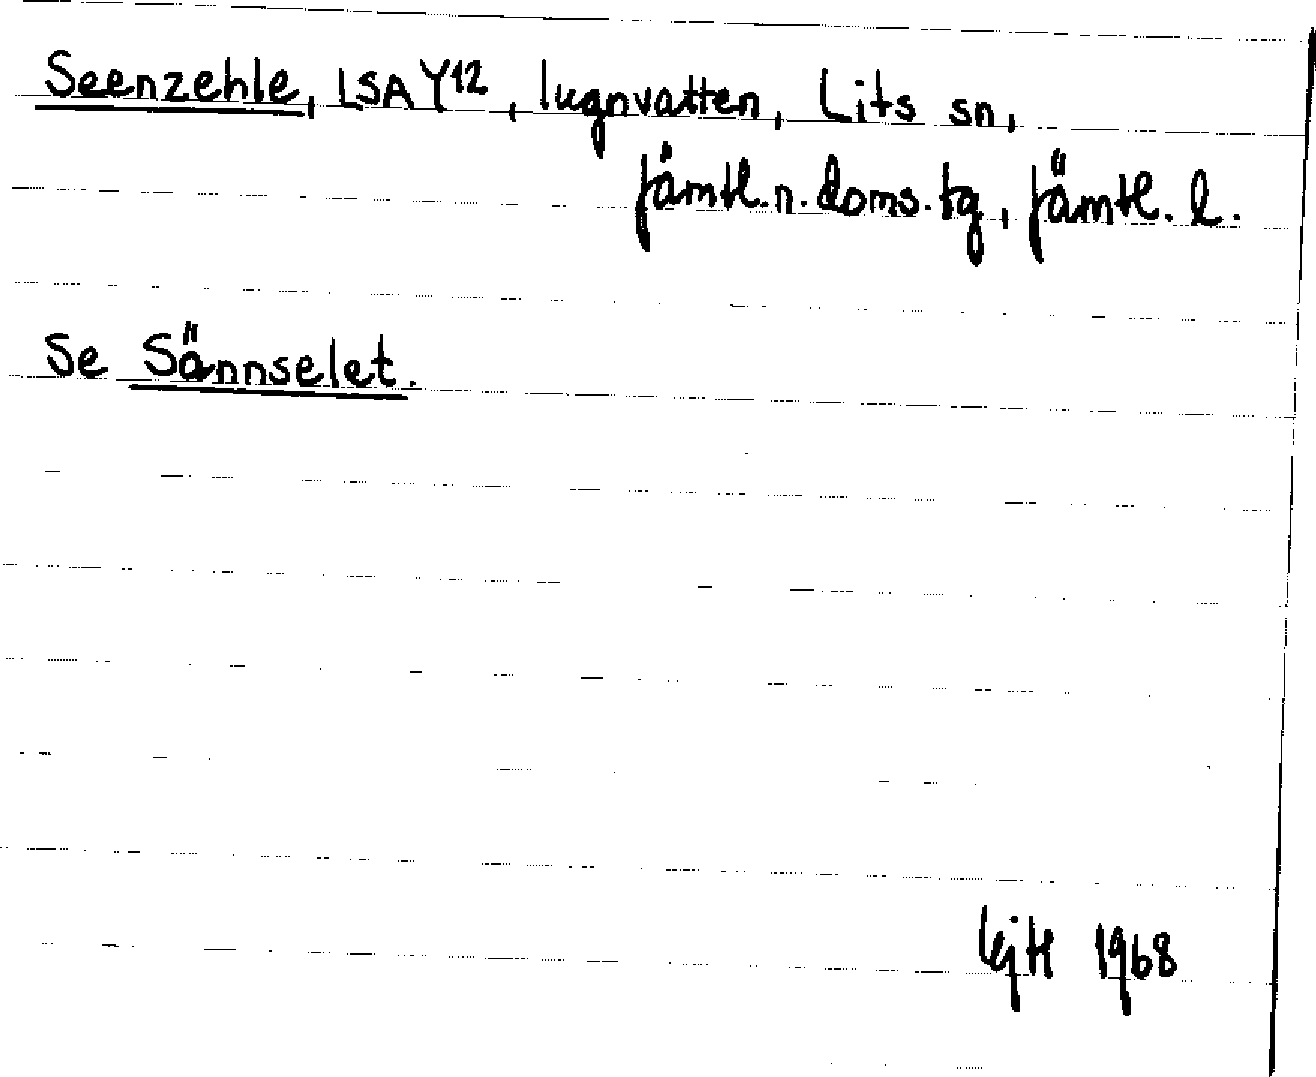 Seenzehle, LSA Y12, lugnvatten, Lits sn,
Jämtl. n. doms. tg, Jämtl. l.
Se Sännselet.
1968